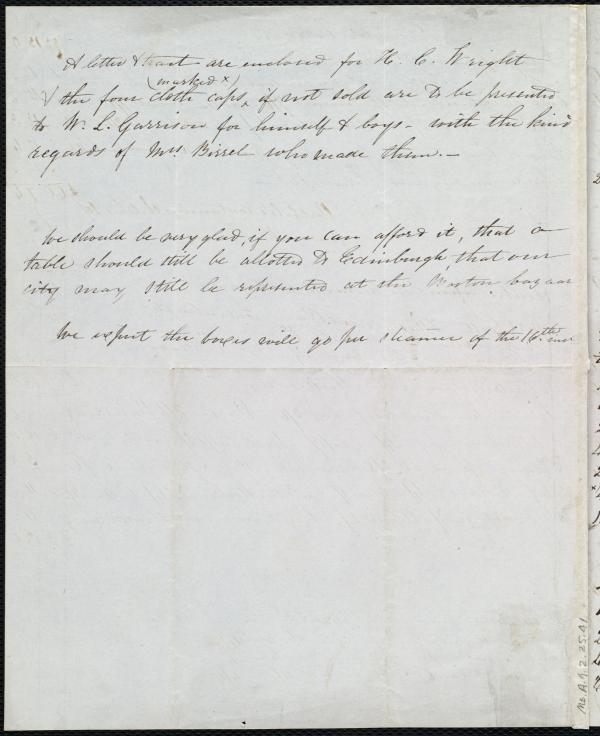 A letter & tract are enclosed for H. C. Wright
(marked x)
& the four cloth caps, if not sold are to be presented
to W. L. Garrison for himself & boys - with the kind
regards of Mrs Birrel who made them. -
We should be very glad, if you can afford it, that a
table should still be allotted to Edinburgh, that our
city may still be represented at the Boston bazaar
We expect the boxes will go per steamer of the 16th inst
Ms. A. 9. 2. 25. 41